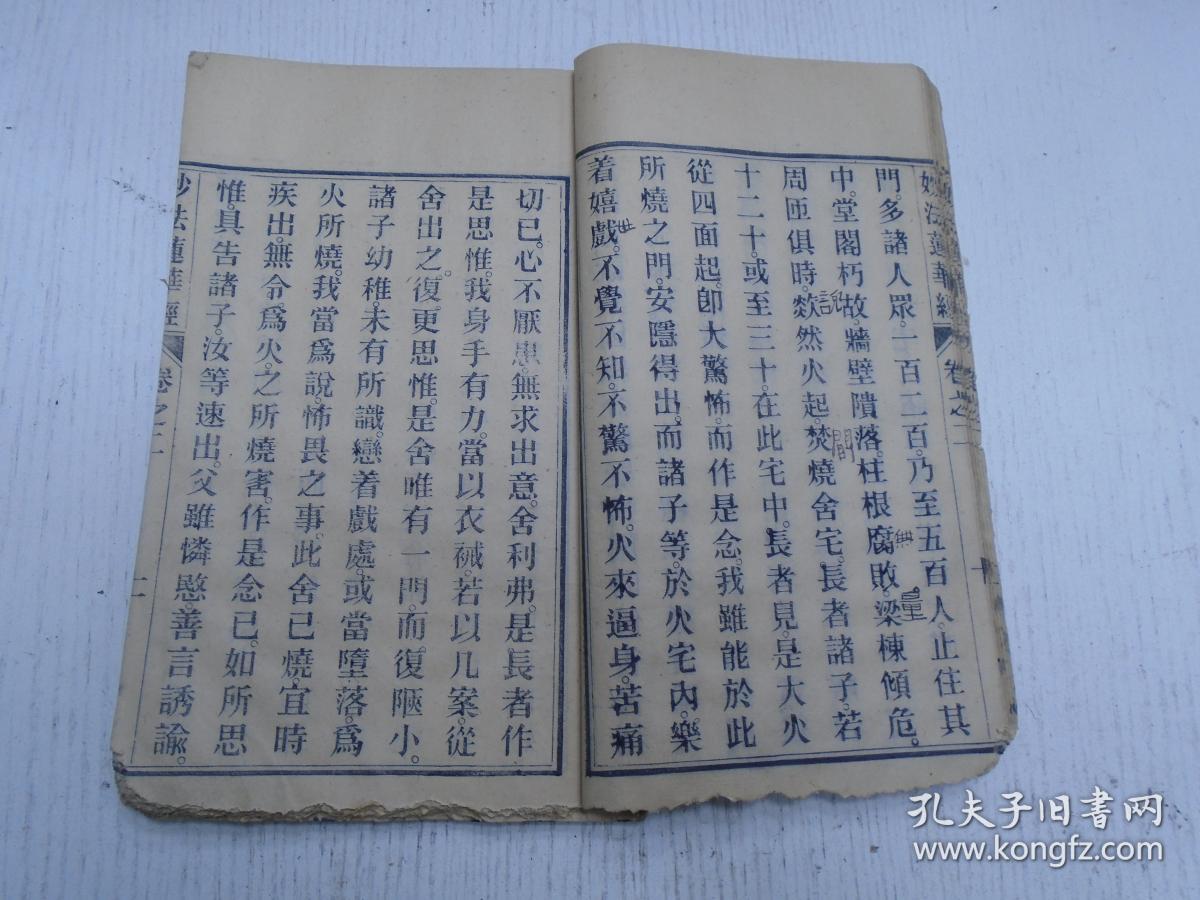 妙法蓮華經
卷之二
門。多諸人眾。一百二百。乃至五百人。止住其
中。堂閣朽故。牆壁隤落。柱根腐敗。梁棟傾危。
周匝俱時。欻然火起。焚燒舍宅。長者諸子。若
十二十。或至三十。在此宅中。長者見。是大火
從四面起。卽大驚怖。而作是念。我雖能於此
所燒之門。安隱得出。而諸子等。於火宅內。樂
着嬉戲。不覺不知。不驚不怖。火來逼身。苦痛
切已。心不厭患。無求出意。舍利弗。是長者作
是思惟。我身手有力。當以衣裓。若以几案。從
舍出之。復更思惟。是舍唯有一門。而復陿小。
諸子幼稚。未有所識。戀着戲處。或當墮落。爲
火所燒。我當爲說。怖畏之事。此舍已燒。宜時
疾出。無令。爲火。之所燒害。作是念已。如所思
惟。具告諸子。汝等速出。父雖憐愍。善言誘諭。
妙法蓮華經
卷之二
孔夫子旧书网
www.kongfz.com